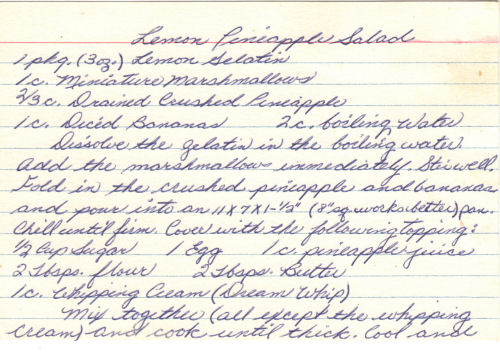 Lemon Pineapple Salad
1 pkg. (3oz.) Lemon Gelatin
1 c. Miniature Marshmallows
2/3 c. Drained Crushed Pineapple
1 c. Diced Bananas 2 c. boiling water
Dissolve the gelatin in the boiling water.
Add the marshmallows immediately. Stir well.
Fold in the crushed pineapple and bananas
and pour into an 11 X 7 X 1-1/2" (8" sq. works better) pan.
Chill until firm. Cover with the following topping:
1/2 Cup Sugar 1 Egg 1 c. pineapple juice
2 Tbsps. flour 2 Tbsps. Butter
1 c. Whipping Cream (Dream Whip)
Mix together (all except the whipping
cream) and cook until thick. Cool and